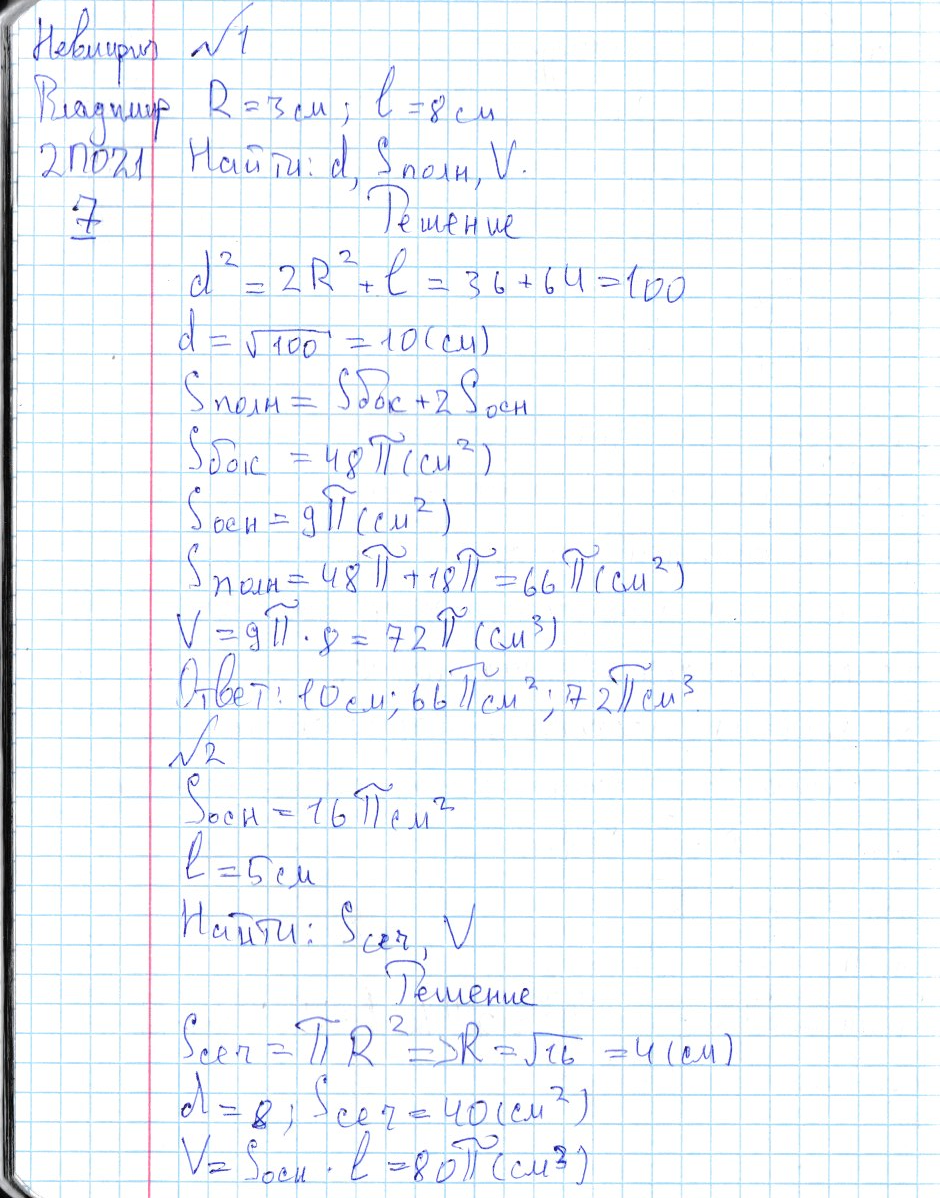 Невмирич √1
Владимир R = 3 см; l = 8 см
2ПО21 Найти: d, Sполн, V.
7 Решение
d² = 2R² + l = 36 + 64 = 100
d = √100 = 10 (см)
Sполн = Sбок + 2Sосн
Sбок = 48π (см²)
Sосн = 9π (см²)
Sполн = 48π + 18π = 66π (см²)
V = 9π · 8 = 72π (см³)
Ответ: 10 см; 66π см²; 72π см³.
√2
Sосн = 16π см²
l = 5 см
Найти: Sсеч, V
Решение
Sсеч = πR² => R = √16 = 4 (см)
d = 8; Sсеч = 40 (см²)
V = Sосн · l = 80π (см³)